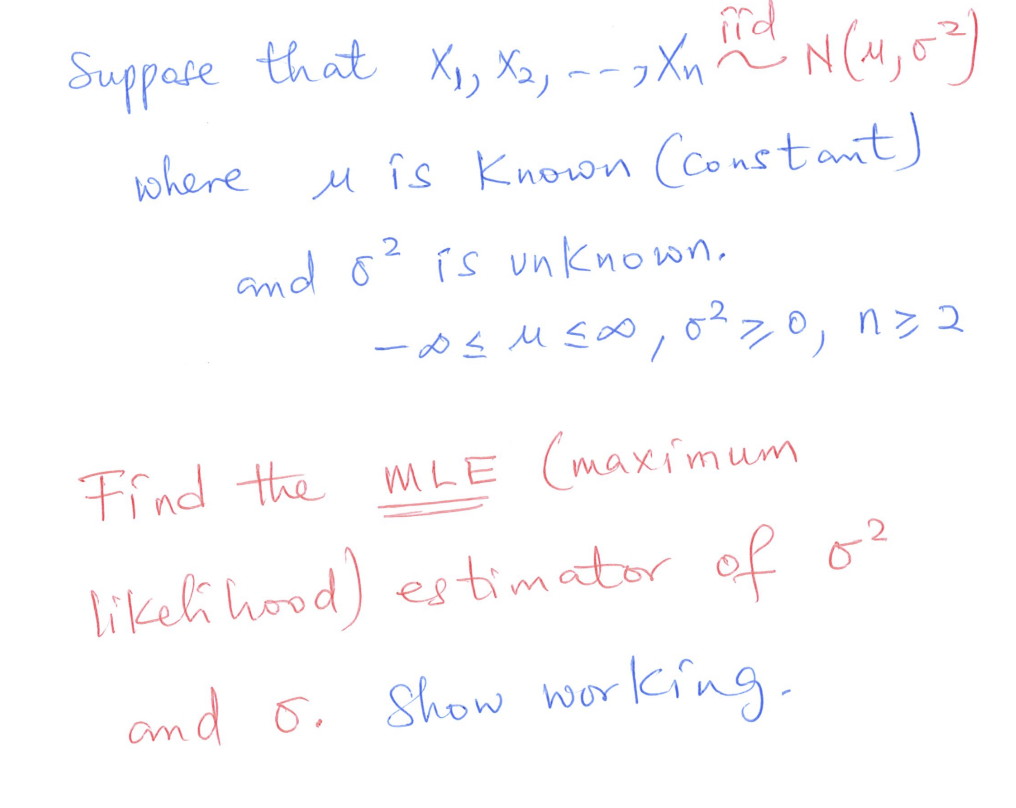 Suppose that X₁, X₂, ---, Xn iid ~ N(μ, σ²)
where μ is known (constant)
and σ² is unknown.
-∞ ≤ μ ≤ ∞, σ² ≥ 0, n ≥ 2
Find the MLE (maximum
likelihood) estimator of σ²
and σ. Show working.